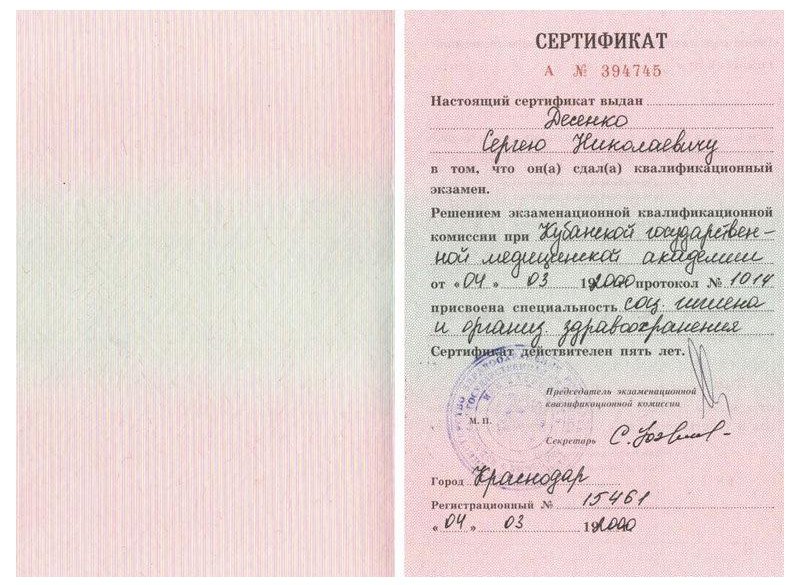 СЕРТИФИКАТ
А № 394745
Настоящий сертификат выдан
Десенко
Сергею Николаевичу
в том, что он(а) сдал(а) квалификационный
экзамен.
Решением экзаменационной квалификационной
комиссии при Кубанской государствен-
ной медицинской академии
от «04» 03 2000 протокол № 1014
присвоена специальность соц. гигиена
и организ. здравоохранения
Сертификат действителен пять лет.
Председатель экзаменационной
квалификационной комиссии
М. П.
Секретарь
Город Краснодар
Регистрационный № 15461
«04» 03 2000